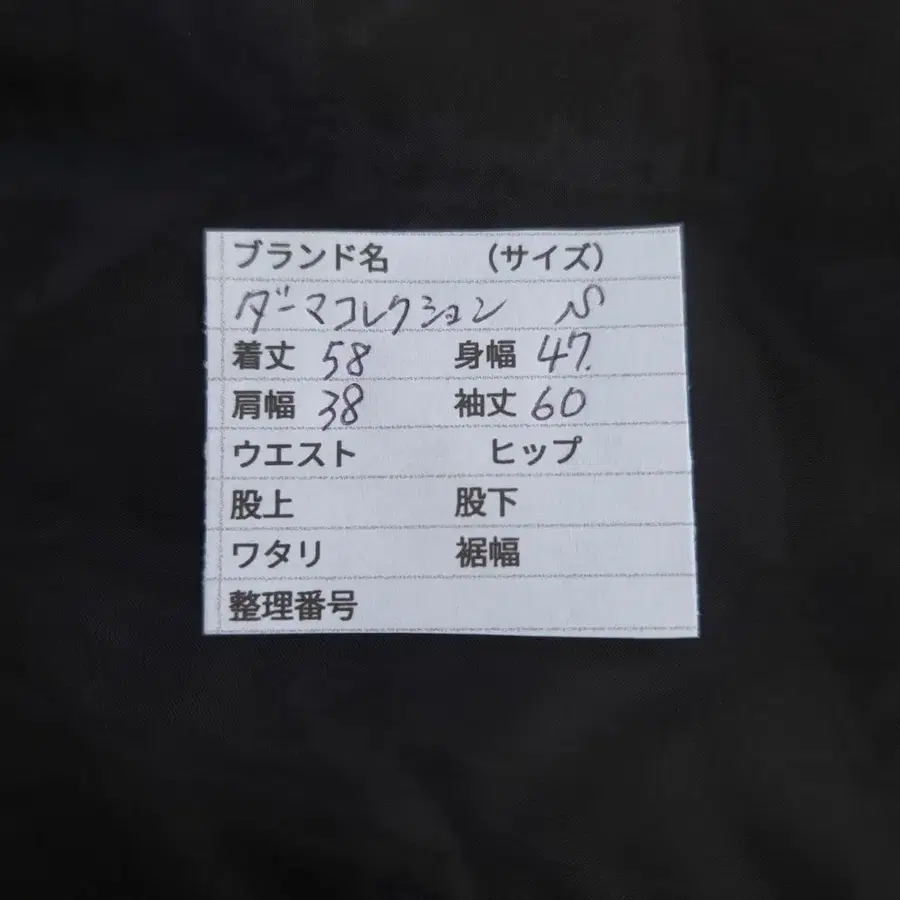 ブランド名 (サイズ)
ダーマコレクション S
着丈 58 身幅 47.
肩幅 38 袖丈 60
ウエスト ヒップ
股上 股下
ワタリ 裾幅
整理番号